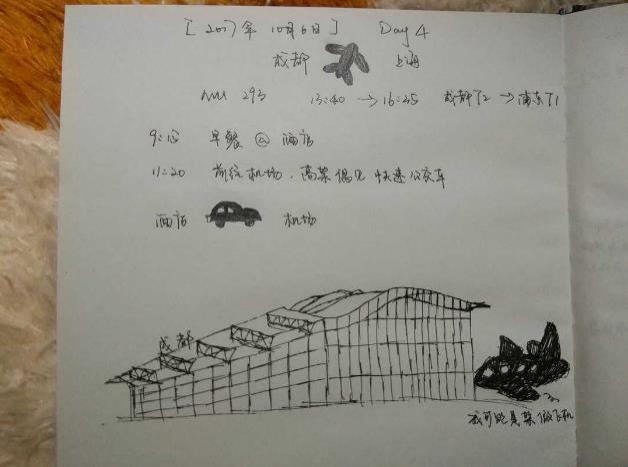 [2017年 10月6日] Day 4
成都 上海
MU 293 13:40 → 16:35 成都T2 → 浦东T1
9:15 早餐 @ 酒店
11:20 前往机场，高架偶见快速公交车
酒店 机场
成都
我可能是架假飞机